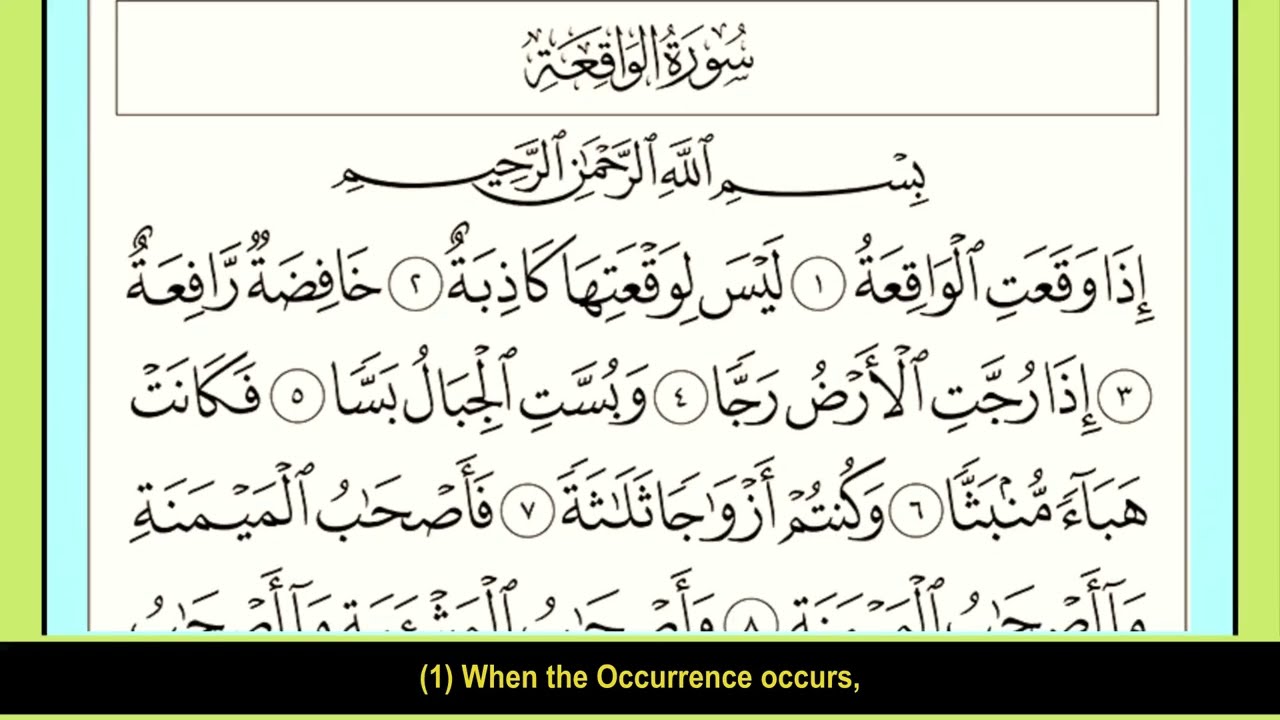 سُورَةُ الْوَاقِعَةِ
بِسْمِ ٱللَّهِ ٱلرَّحْمَٰنِ ٱلرَّحِيمِ
إِذَا وَقَعَتِ ٱلْوَاقِعَةُ ١ لَيْسَ لِوَقْعَتِهَا كَاذِبَةٌ ٢ خَافِضَةٌ رَّافِعَةٌ
٣ إِذَا رُجَّتِ ٱلْأَرْضُ رَجًّا ٤ وَبُسَّتِ ٱلْجِبَالُ بَسًّا ٥ فَكَانَتْ
هَبَآءً مُّنۢبَثًّا ٦ وَكُنتُمْ أَزْوَٰجًا ثَلَٰثَةً ٧ فَأَصْحَٰبُ ٱلْمَيْمَنَةِ
مَآ أَصْحَٰبُ ٱلْمَيْمَنَةِ ٨ وَأَصْحَٰبُ ٱلْمَشْـَٔمَةِ مَآ أَصْحَٰبُ
(1) When the Occurrence occurs,